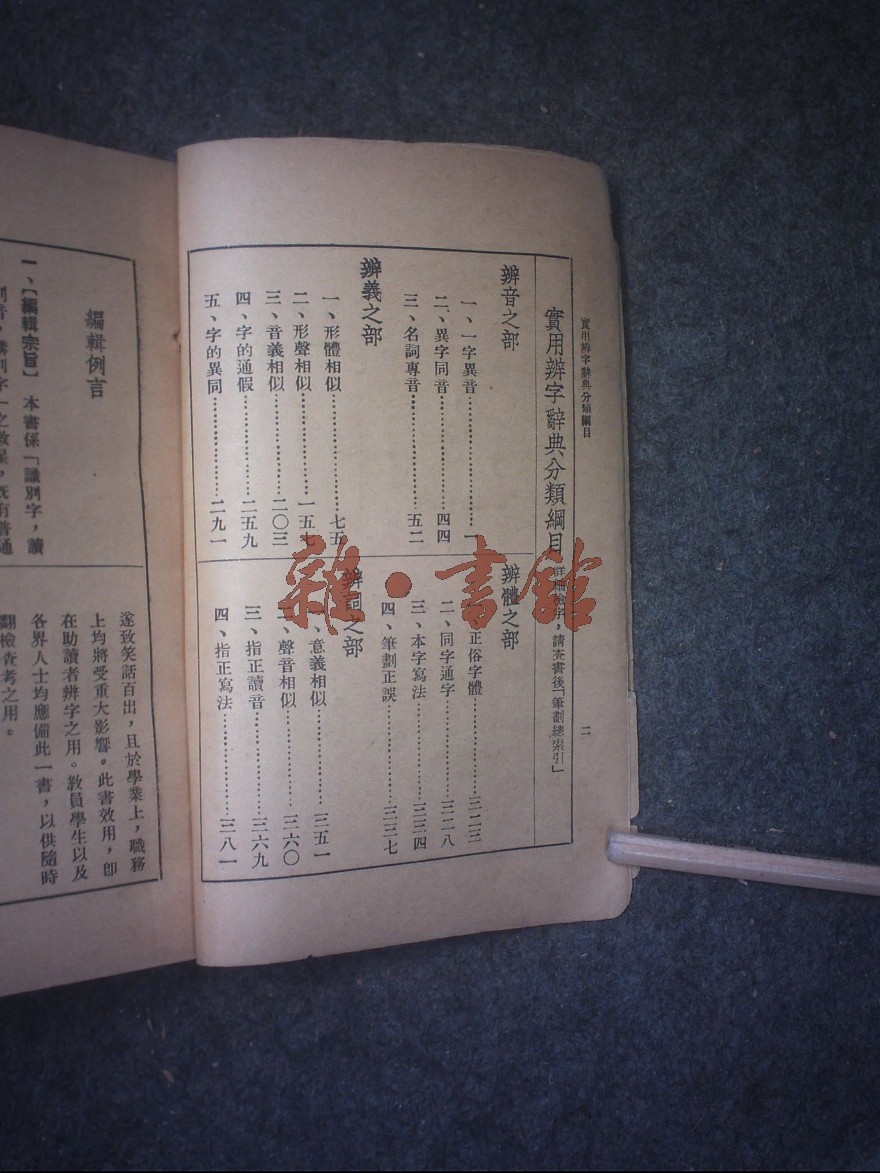 實用辨字辭典分類綱目
二
實用辨字辭典分類綱目
詳細檢字，請查書後「筆劃總索引」
辨音之部
一、一字異音………一
二、異字同音………四四
三、名詞專音………五二
辨義之部
一、形體相似………七五
二、形聲相似………一五七
三、音義相似………二〇三
四、字的通假………二五九
五、字的異同………二九一
辨體之部
正俗字體………三二三
二、同字通字………三二八
三、本字寫法………三三四
四、筆劃正誤………三三七
辨詞之部
一、意義相似………三五一
二、聲音相似………三六〇
三、指正讀音………三六九
四、指正寫法………三八一
編輯例言
一、【編輯宗旨】　本書係「識別字，讀
遂致笑話百出，且於學業上，職務
上均將受重大影響。此書效用，卽
在助讀者辨字之用。教員學生以及
各界人士均應備此一書，以供隨時
翻檢查考之用。
雜·書館